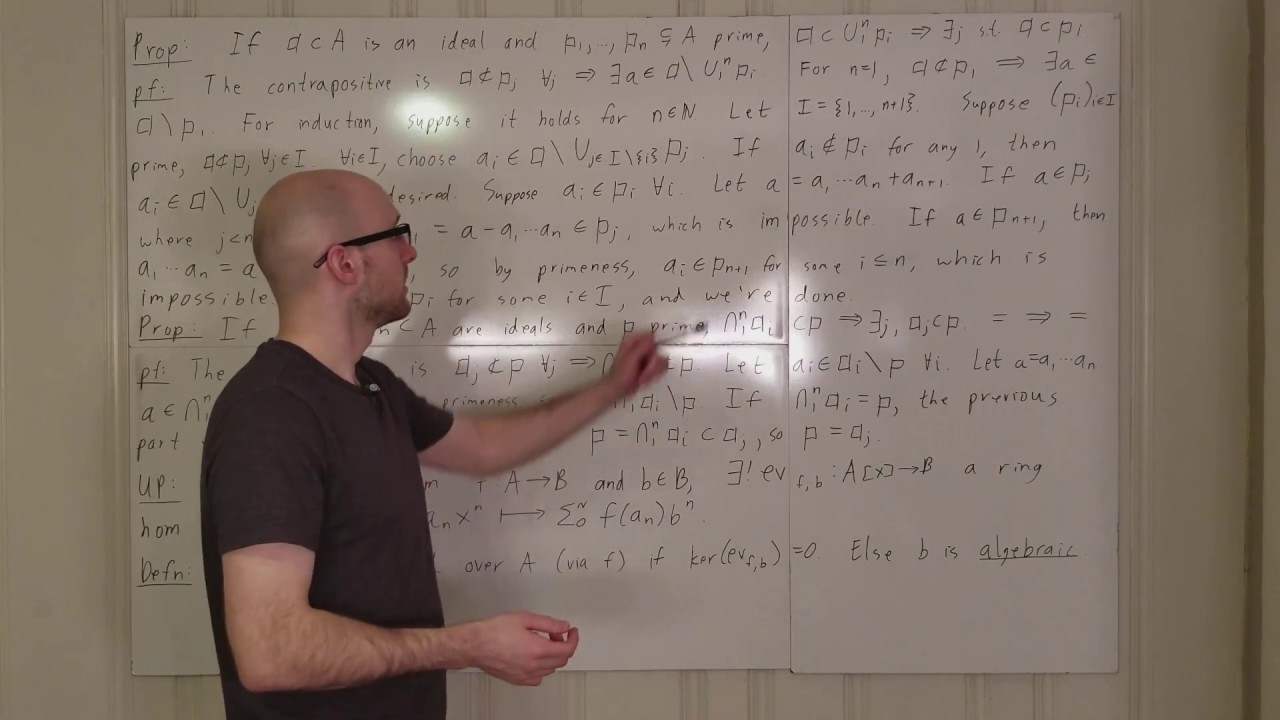 Prop: If 𝔞 ⊂ A is an ideal and p₁,…, pₙ ⊊ A prime, 𝔞 ⊂ ∪₁ⁿ pᵢ ⇒ ∃j s.t. 𝔞 ⊂ pⱼ
pf: The contrapositive is 𝔞 ⊄ pⱼ ∀j ⇒ ∃a ∈ 𝔞 \ ∪₁ⁿ pᵢ. For n=1, 𝔞 ⊄ p₁ ⇒ ∃a ∈
𝔞 \ p₁. For induction, suppose it holds for n ∈ N Let I = {1,…, n+1}. Suppose (pᵢ)ᵢ∈I
prime, 𝔞 ⊄ pⱼ ∀j∈I. ∀i∈I, choose aᵢ ∈ 𝔞 \ ∪ⱼ∈I\{i} pⱼ. If aᵢ ∉ pᵢ for any i, then
aᵢ ∈ 𝔞 \ ∪ⱼ desired. Suppose aᵢ ∈ pᵢ ∀i. Let a = a₁⋯aₙ + aₙ₊₁. If a ∈ pⱼ
where j<n = a − a₁⋯aₙ ∈ pⱼ, which is impossible. If a ∈ pₙ₊₁, then
a₁⋯aₙ = a so by primeness, aᵢ ∈ pₙ₊₁ for some i ≤ n, which is
impossible. pᵢ for some i ∈ I, and we're done.
Prop: If ₙ ⊂ A are ideals and p prime, ∩₁ⁿ 𝔞ᵢ ⊂ p ⇒ ∃j, 𝔞ⱼ ⊂ p. = ⇒ =
pf: The is 𝔞ⱼ ⊄ p ∀j ⇒ p. Let aᵢ ∈ 𝔞ᵢ \ p ∀i. Let a = a₁⋯aₙ
a ∈ ∩₁ⁿ primeness 𝔞ᵢ \ p. If ∩₁ⁿ 𝔞ᵢ = p, the previous
part p = ∩₁ⁿ 𝔞ᵢ ⊂ 𝔞ⱼ, so p = 𝔞ⱼ.
UP: A → B and b ∈ B, ∃! ev_{f,b} : A[x] → B a ring
hom aₙxⁿ ↦ Σ₀ᴺ f(aₙ)bⁿ.
Defn: over A (via f) if ker(ev_{f,b}) = 0. Else b is algebraic